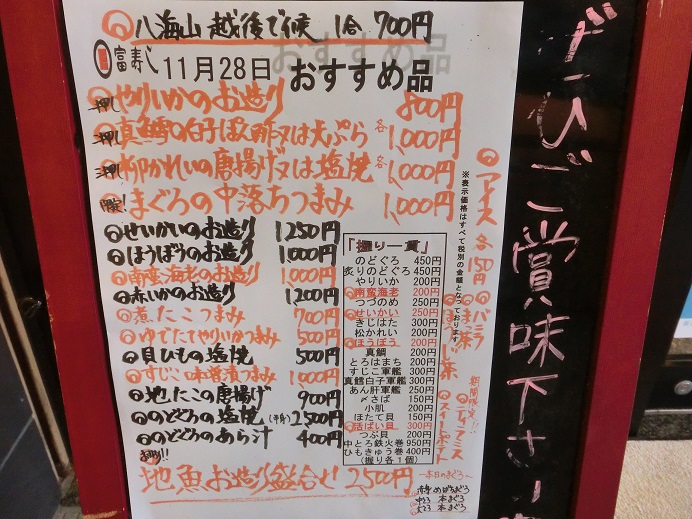 八海山 越後で候 1合 700円
富寿し 11月28日 おすすめ品
おすすめ品
押し やりいかのお造り 800円
押し 真鱈の白子ぽん酢又は天ぷら 各1,000円
押し 柳かれいの唐揚げ又は塩焼 各1,000円
まぐろの中落ちつまみ 1,000円
せいかいのお造り 1250円
ほうぼうのお造り 1000円
南蛮海老のお造り 1,000円
赤いかのお造り 1200円
煮たこつまみ 700円
ゆでたてやりいかつまみ 500円
貝ひもの塩焼 500円
すじこ味噌漬つまみ 1,000円
地たこの唐揚げ 900円
のどぐろの塩焼(半身) 2500円
のどぐろのあら汁 400円
地魚お造り盛合せ 2,500円
「握り一貫」
のどぐろ 450円
炙りのどぐろ 450円
やりいか 200円
南蛮海老 200円
つづのめ 250円
せいかい 250円
きじはた 300円
松かれい 200円
ほうぼう 200円
真鯛 200円
とろはまち 200円
すじこ軍艦 300円
真鱈白子軍艦 300円
あん肝軍艦 250円
〆さば 150円
小肌 200円
ほたて貝 150円
活ばい貝 300円
つぶ貝 200円
中とろ鉄火巻 950円
ひもきゅう巻 400円
(握り各1個)
※表示価格はすべて税別の金額となっております
アイス 各150円
バニラ
抹茶
ほうじ茶
期間限定!!
ティラミス
スイートポテト
〜本日のまぐろ〜
赤身 めばちまぐろ
中とろ 本まぐろ
大とろ 本まぐろ
ぜひご賞味下さい